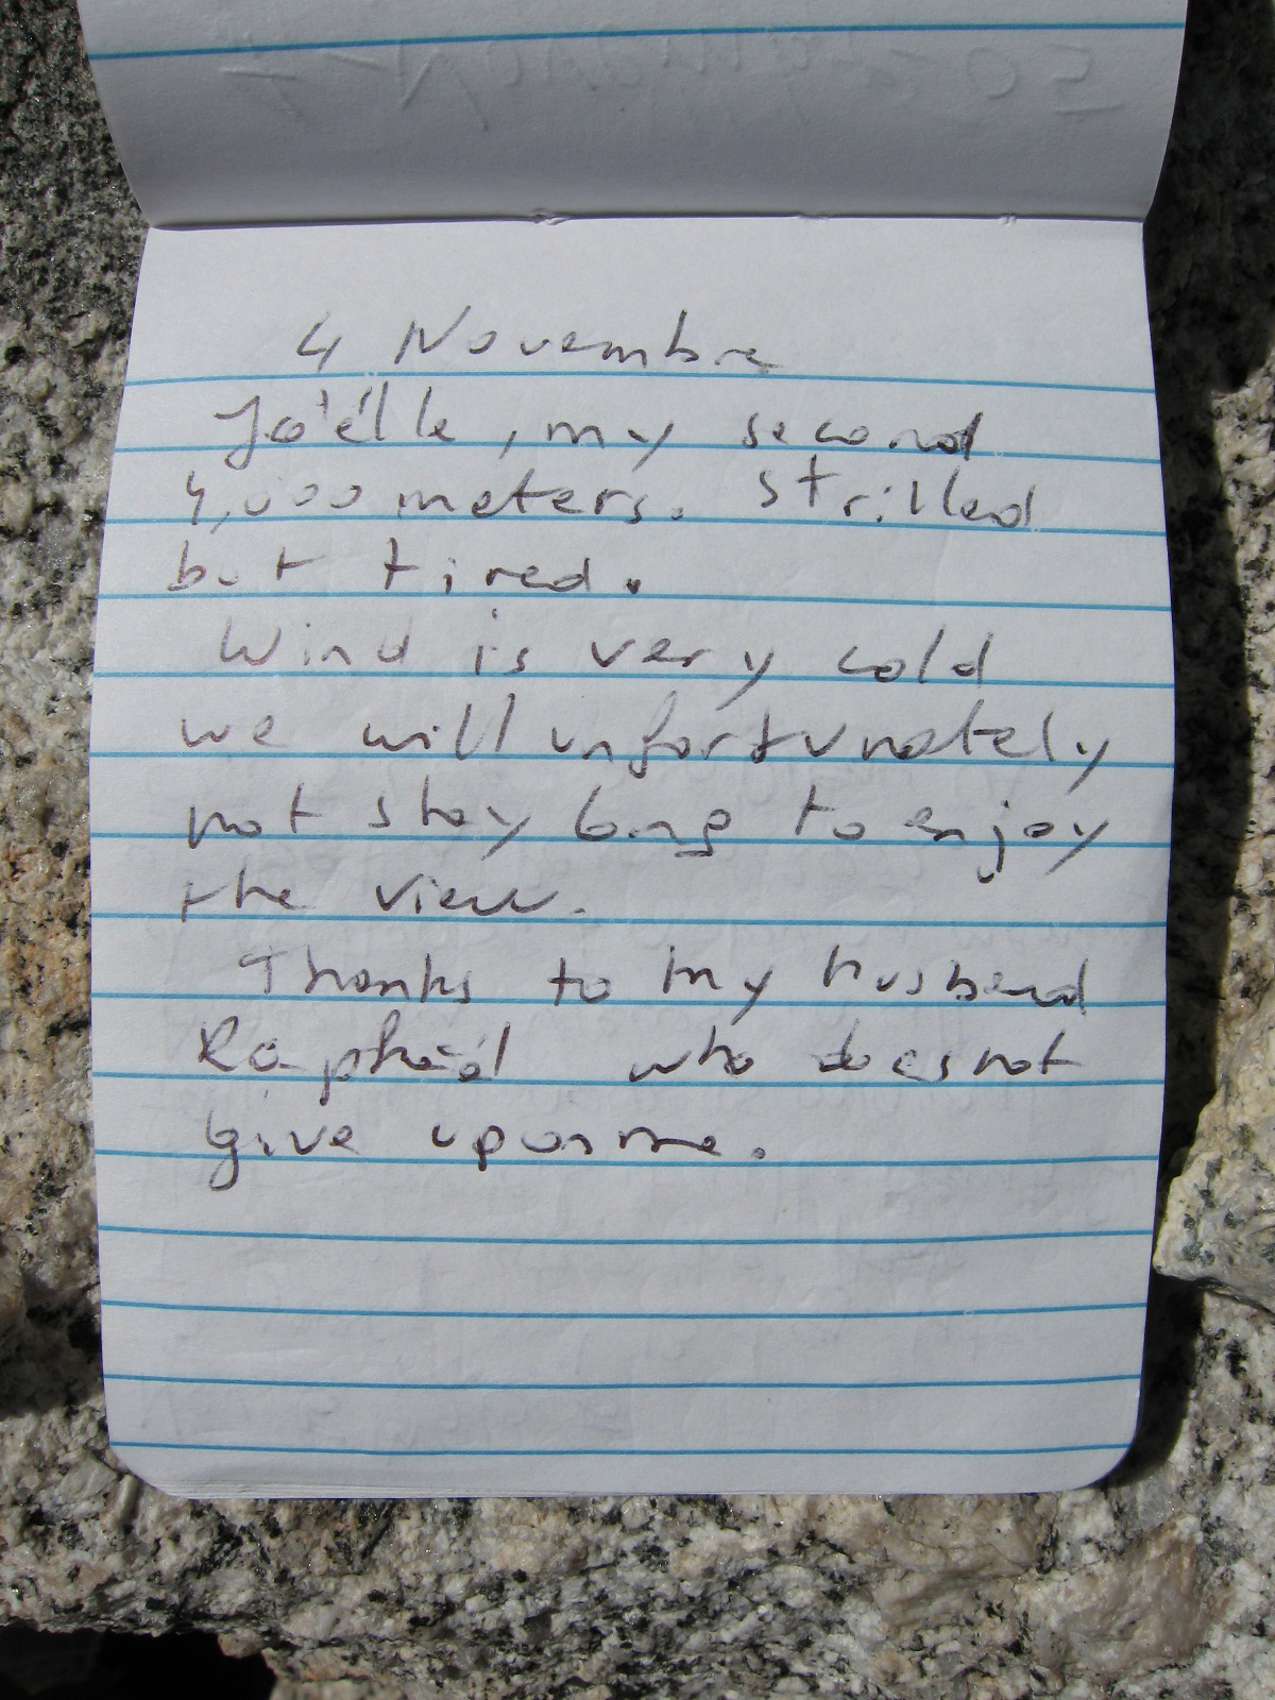 4 Novembre
Joëlle, my second
4,000 meters. Strilled
but tired.
Wind is very cold
we will unfortunately
not stay long to enjoy
the view.
Thanks to my husband
Raphaël who does not
give up on me.